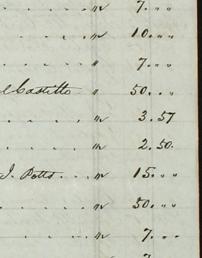 " 7...
. . . " 10...
" 7...
" 50...
. . . . " 3.57
. . . " 2.50.
J. Potts . . . " 15...
. . . " 50...
. . . . " 7...